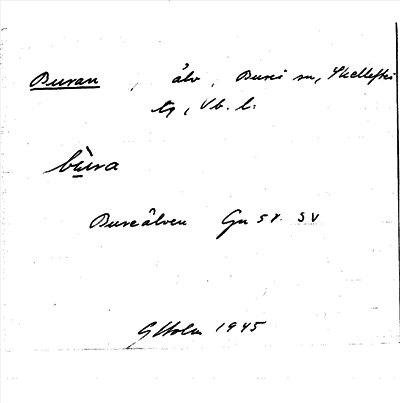 Buran, älv, Bureå sn, Skellefteå
tg, Vb. l.
bùra
Bureälven Gn 5 V. SV
G Holm 1945